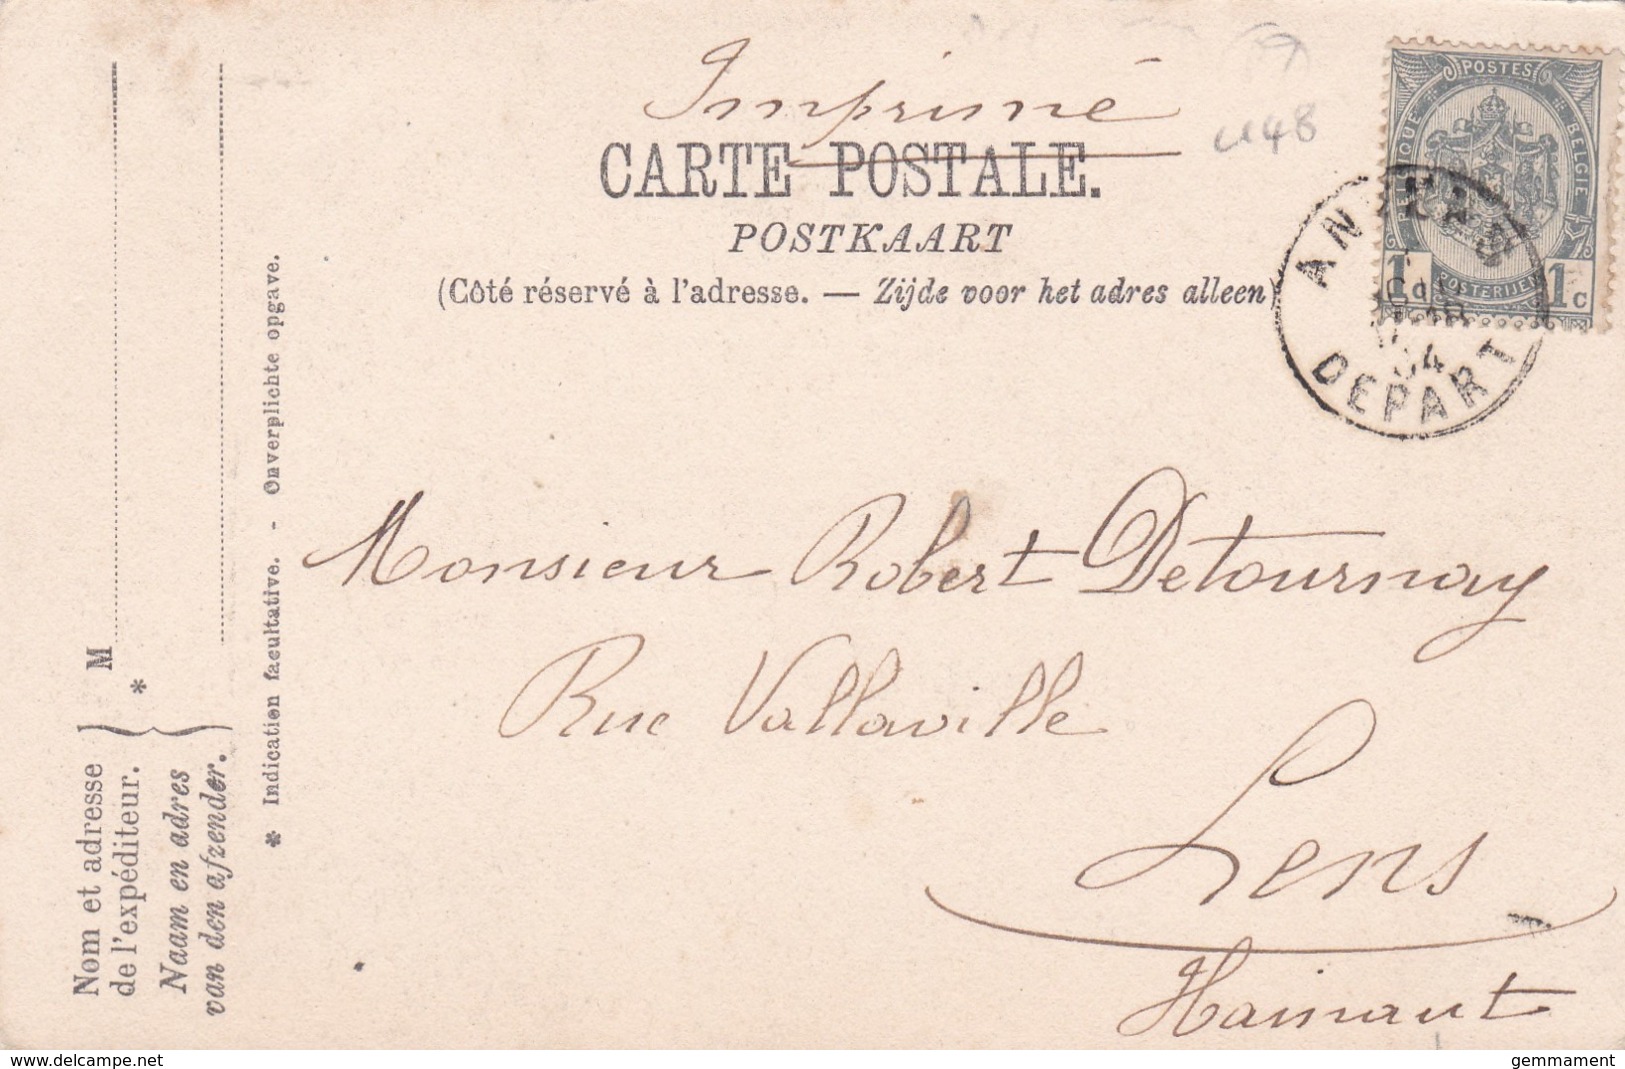 Imprimé
CARTE POSTALE.
POSTKAART
(Côté réservé à l'adresse. — Zijde voor het adres alleen)
POSTES
BELGIE
POSTERIJEN
1c 1c
ANVERS
04
DEPART
Monsieur Robert Detournay
Rue Vallaville
Lens
Hainaut
M
*
Nom et adresse
de l'expéditeur.
Naam en adres
van den afzender.
* Indication facultative. - Onverplichte opgave.
www.delcampe.net
gemmament